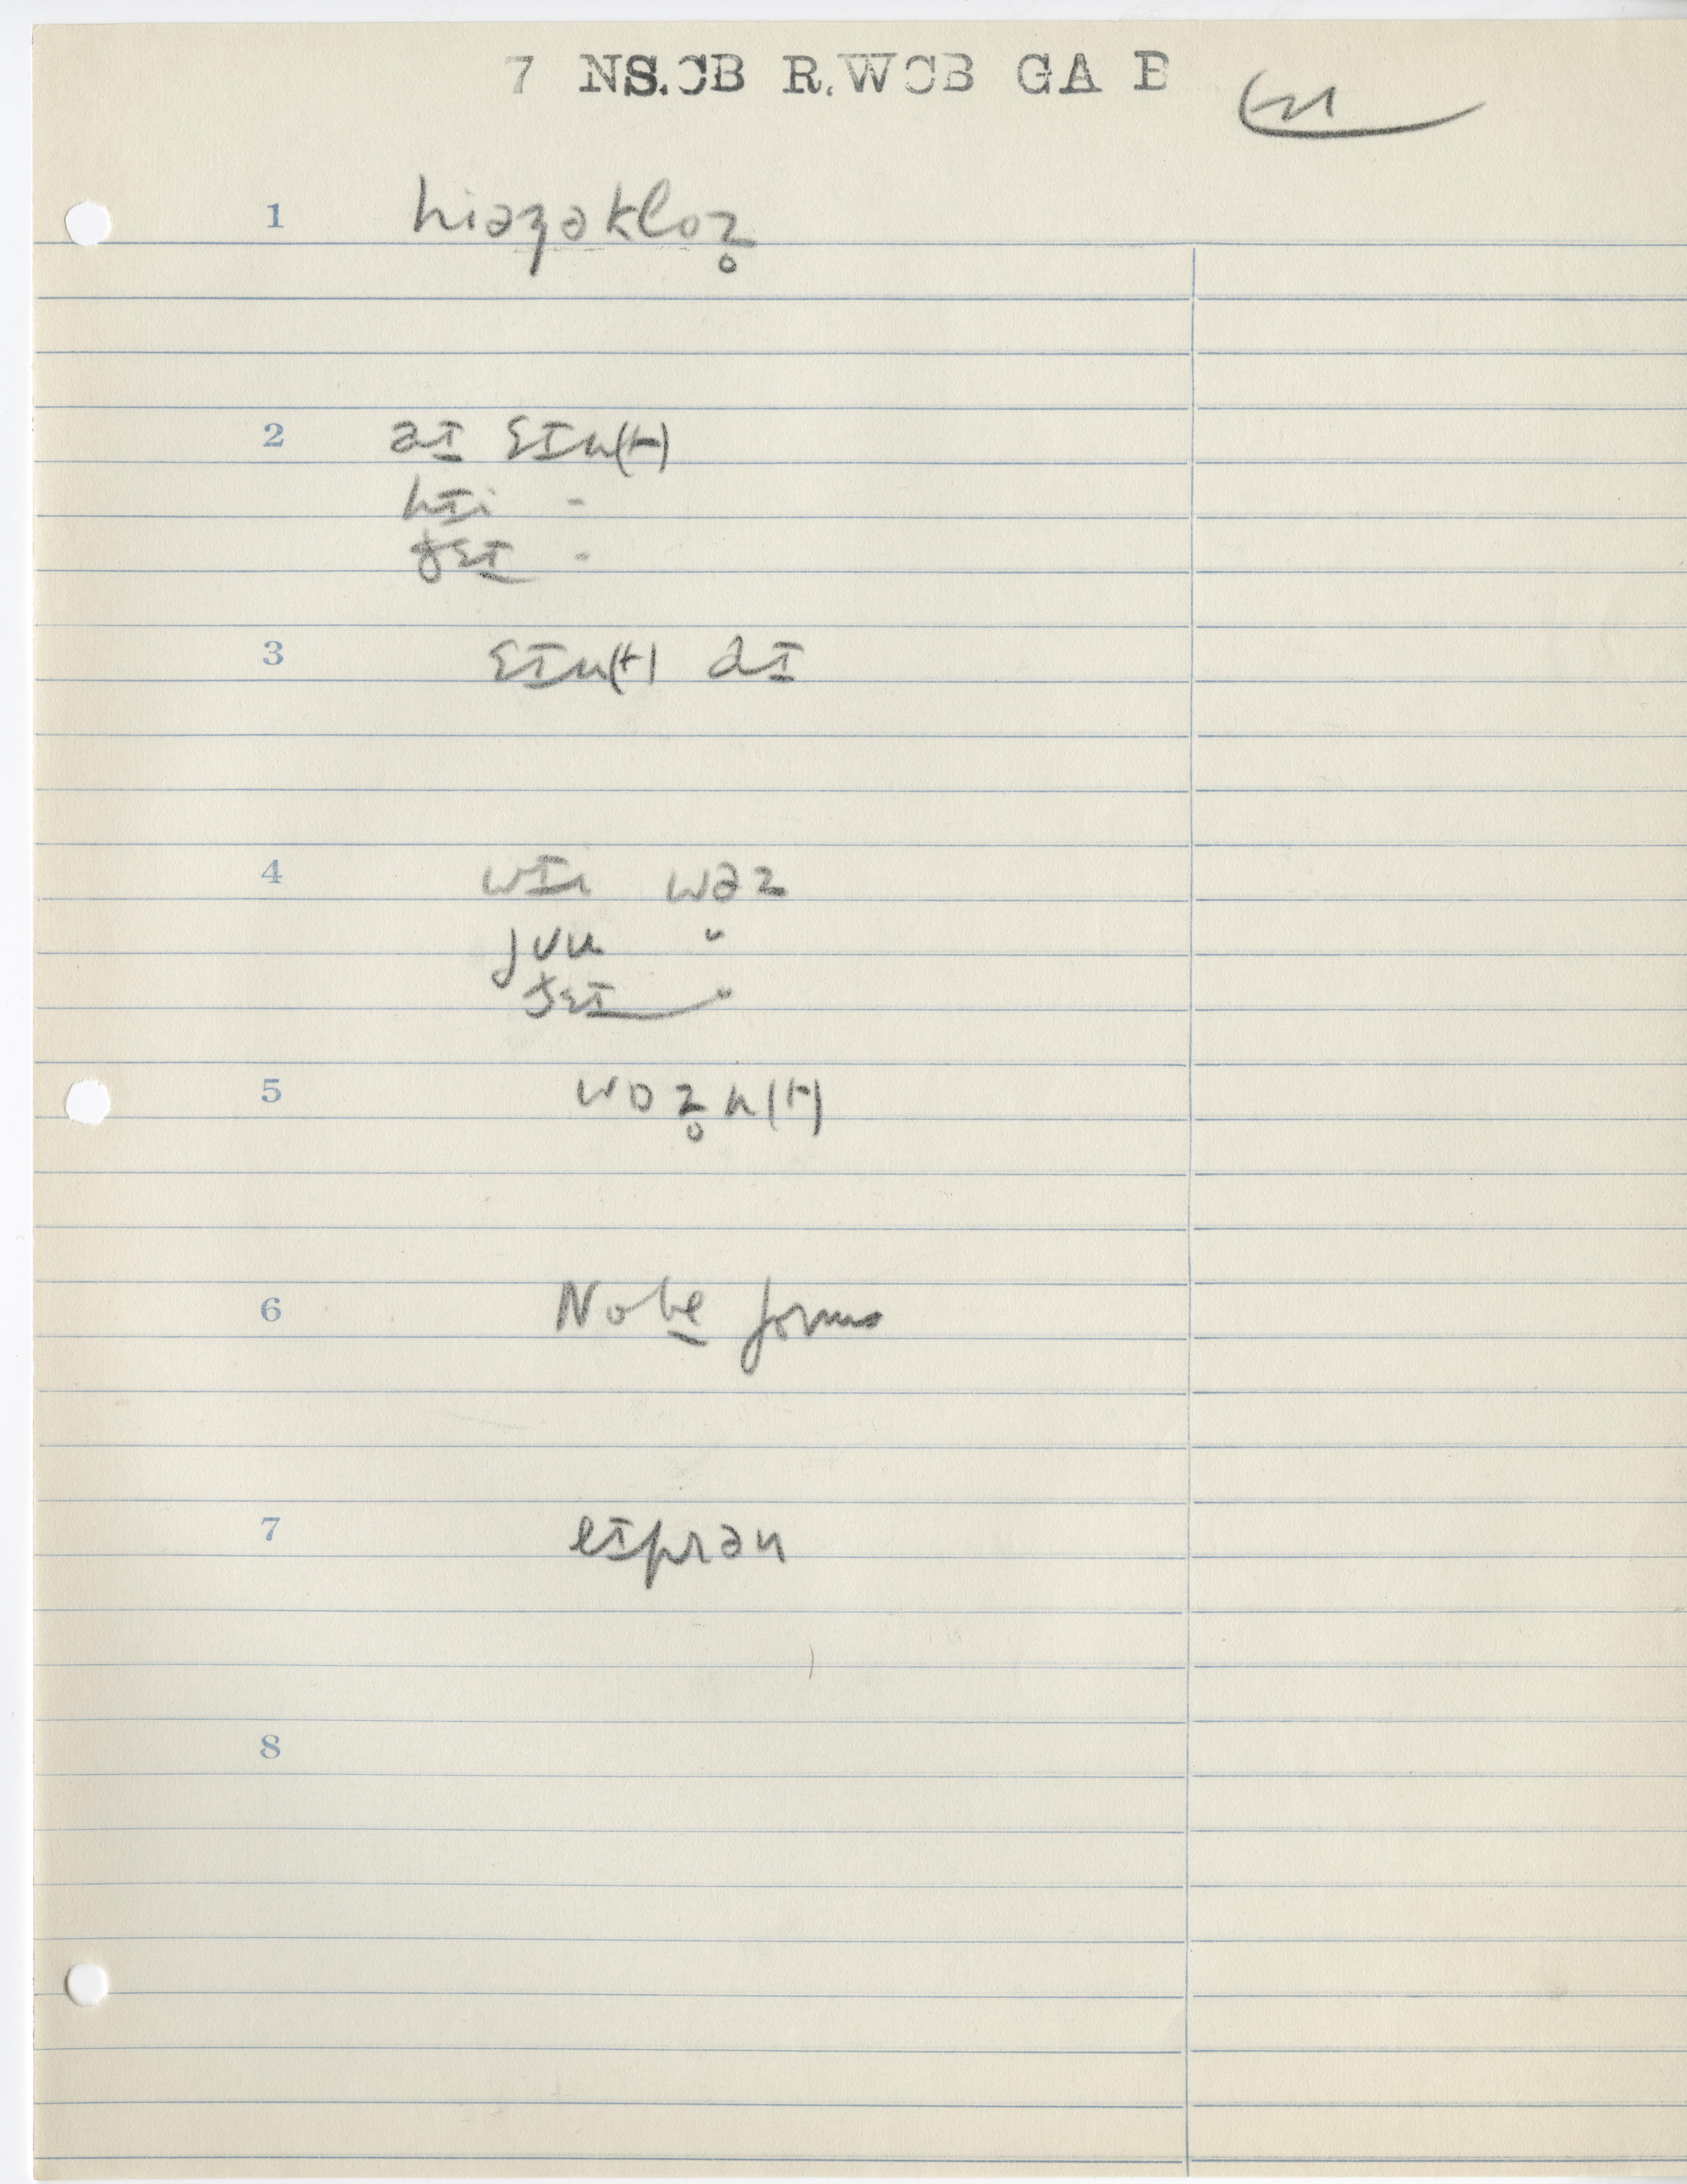 7 NS.CB R.WCB GA B
1 hiəzəkloz̥
2 aɪ ɛɪn(t)
hɪi "
ðɛɪ "
3 ɛɪn(t) aɪ
4 wɪi wəz
jʊu "
ðɛɪ "
5 wɒz̥n(t)
6 No be forms
7 eɪprən
8